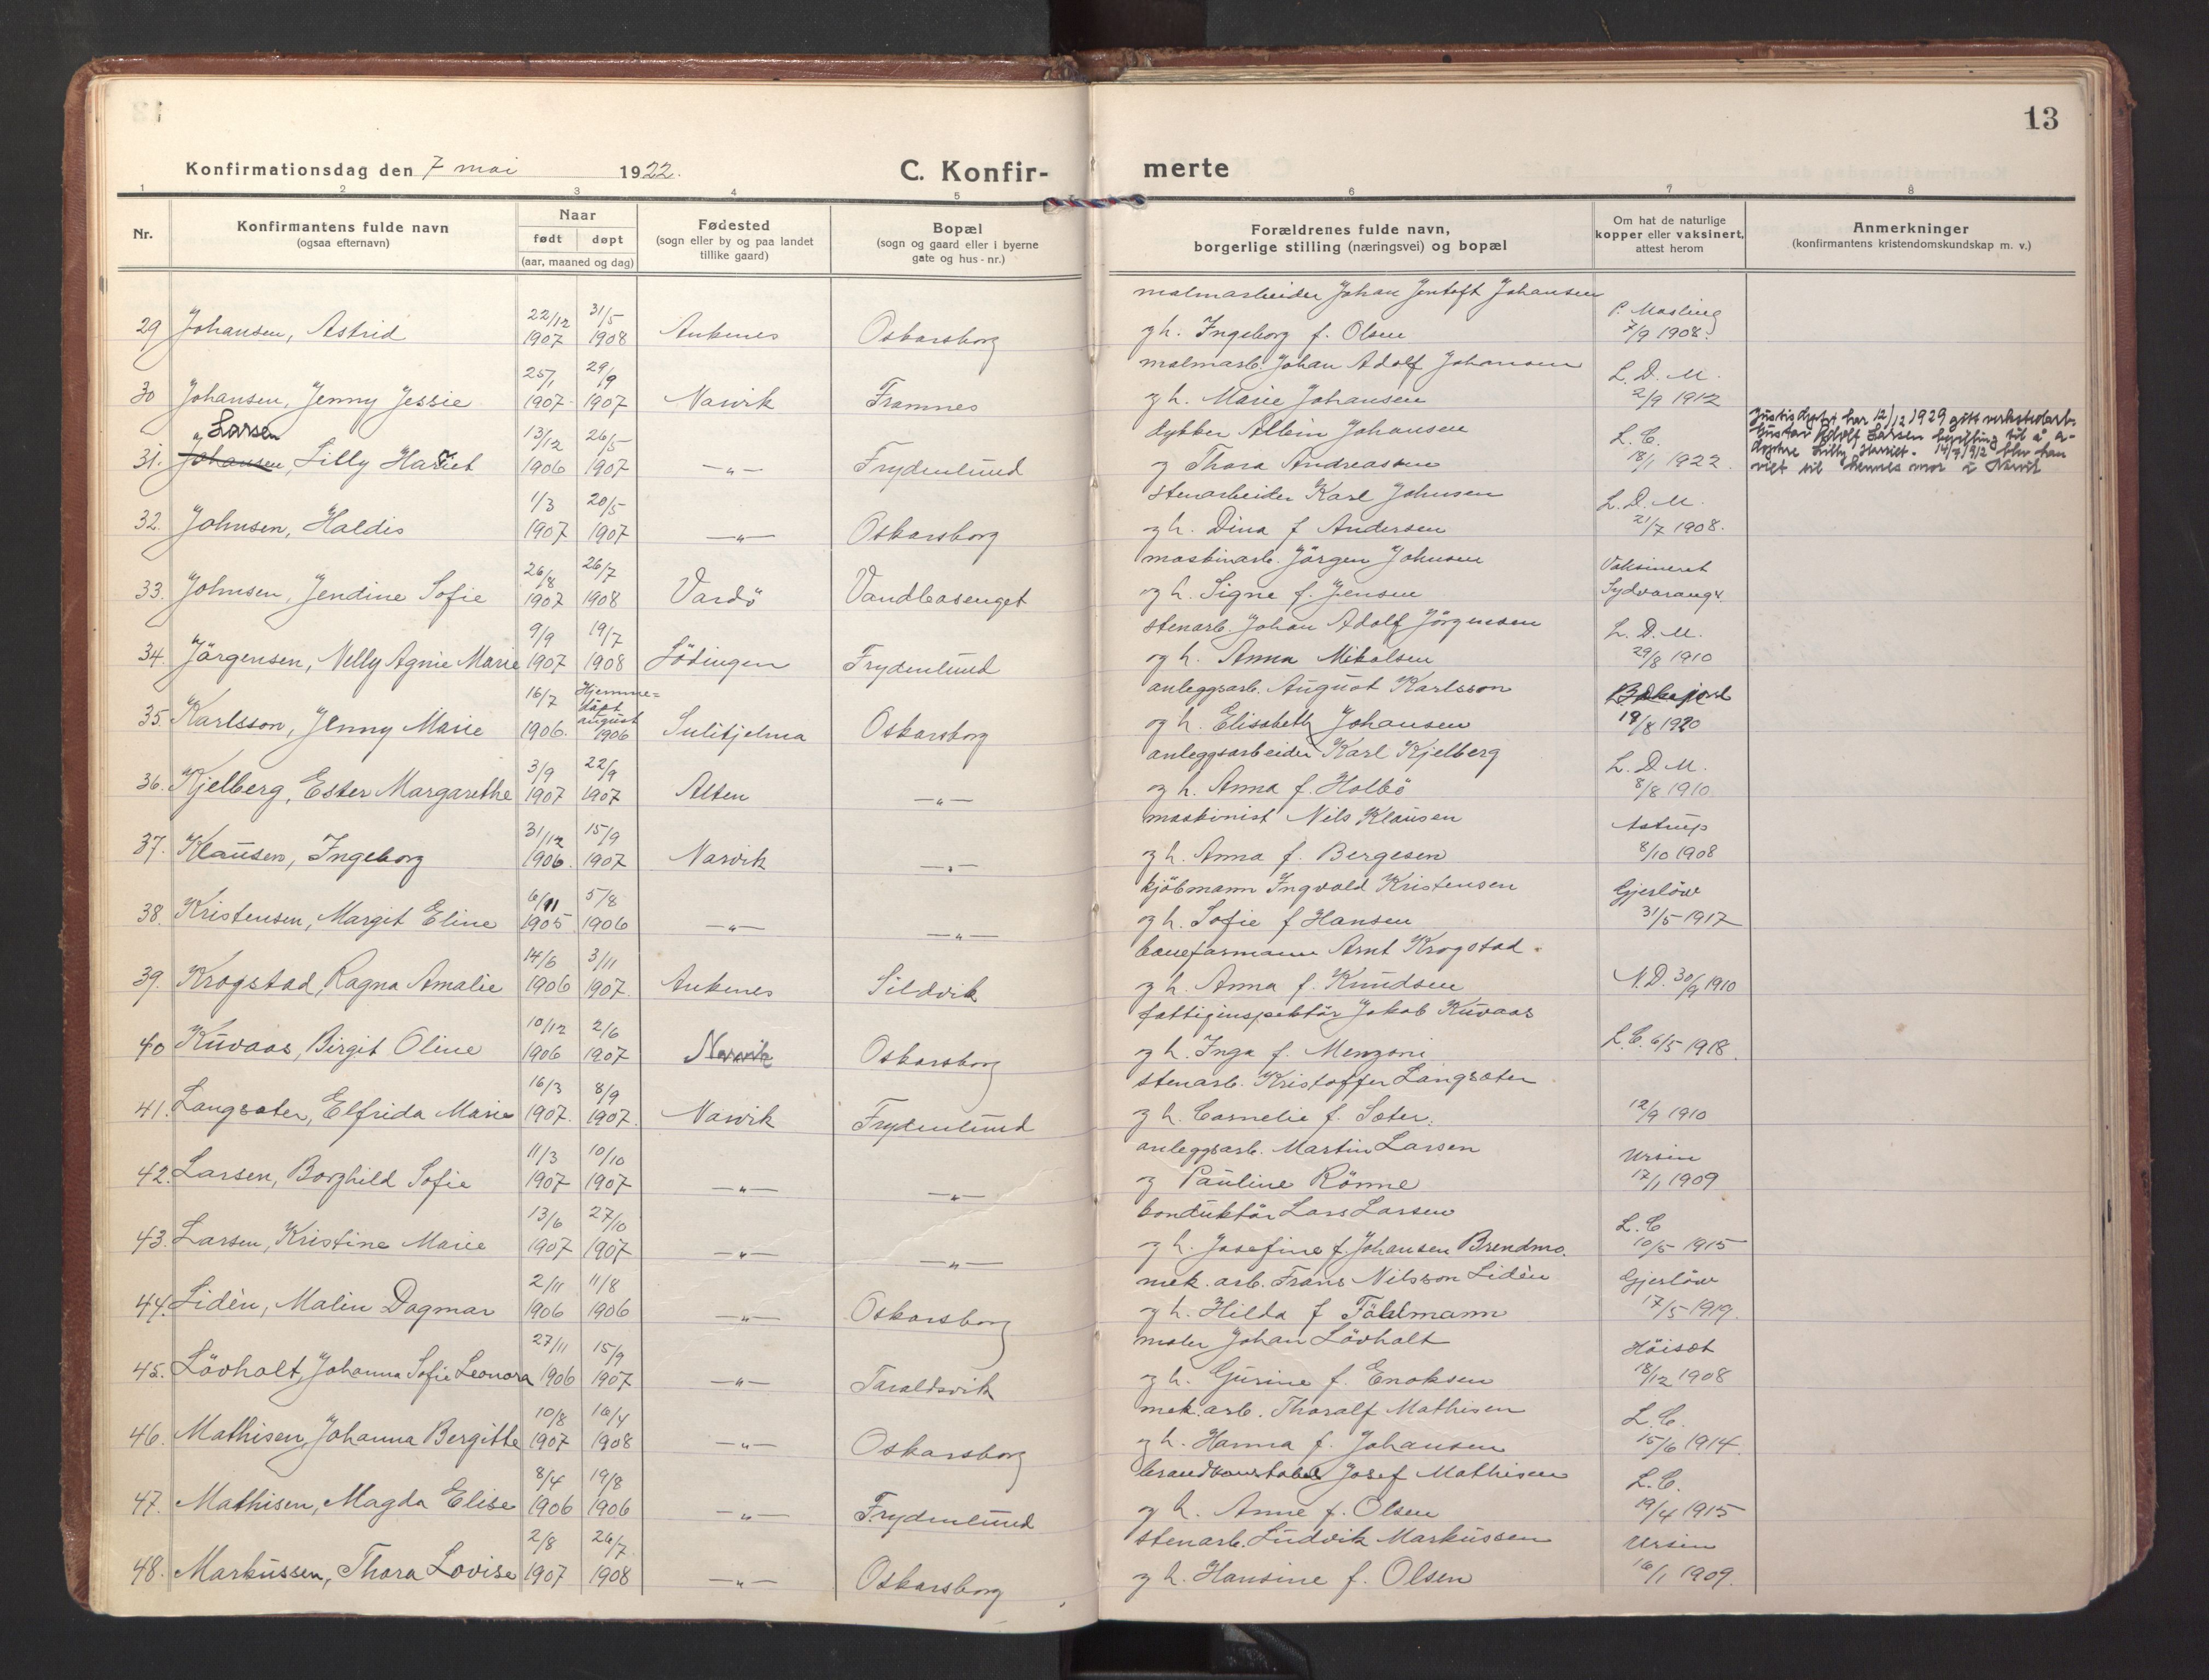 13
Konfirmationsdag den 7 mai 1922. C. Konfir- merte
1 2 3 4 5 6 7 8
Nr. Konfirmantens fulde navn (ogsaa efternavn) Naar født døpt (aar, maaned og dag) Fødested (sogn eller by og paa landet tillike gaard) Bopæl (sogn og gaard eller i byerne gate og hus-nr.) Forældrenes fulde navn, borgerlige stilling (næringsvei) og bopæl Om hat de naturlige kopper eller vaksinert, attest herom Anmerkninger (konfirmantens kristendomskundskap m. v.)
malmarbeider Johan Jentoft Johansen
29 Johansen, Astrid 22/12 1907 31/5 1908 Ankenes Oskarsborg og h. Ingeborg f. Olsen 7/9 1908.
malmarb. Johan Adolf Johansen
30 Johansen, Jenny Jessie 25/1 1907 29/9 1907 Narvik Framnes og h. Marie Johansen L. D. M. 2/9 1912
Larsen dykker Albin Johansen
31. Johansen, Lilly Harriet 13/12 1906 26/5 1907 —„— Frydenlund og Thora Andreassen L. C. 18/1 1922. Justisdept. har 12/12 1929 gitt verkstedarb. Gustav Adolf Larsen bevilling til å adoptere Lilly Harriet. 14/7 1912 blev han vigt til hennes mor i Narvik
stenarbeider Karl Johnsen
32. Johnsen, Haldis 1/3 1907 20/5 1907 —„— Oskarsborg og h. Dina f Andersen L. D. M. 21/7 1908.
maskinarb. Jörgen Johnsen
33. Johnsen, Jendine Sofie 26/8 1907 26/7 1908 Vardö Vandbasenget og h. Signe f. Jensen Vaksineret Sydvarang.
stenarb. Johan Adolf Jörgensen
34. Jörgensen, Nelly Agnie Marie 9/9 1907 19/7 1908 Lödingen Frydenlund og h. Anna Mikalsen L. D. M. 29/8 1910
anleggsarb. August Karlsson
35. Karlsson, Jenny Marie 16/7 1906. Hjemmedöpt august 1906 Sulitjelma Oskarsborg og h. Elisabeth Johansen 18/8 1920
anleggsarbeider Karl Kjelberg
36. Kjelberg, Ester Margarethe 3/9 1907 22/9 1907 Alten —„— og h. Anna f. Holbö L. D. M. 8/8 1910
maskinist Nils Klausen
37. Klausen, Ingeborg 31/12 1906. 15/9 1907 Narvik —„— og h. Anna f. Bergesen Astrup 8/10 1908
kjöbmann Ingvald Kristensen
38. Kristensen, Margit Eline 6/11 1905 5/8 1906 —„— —„— og h. Sofie f Hansen Gjerlöw 31/5 1917
baneformann Arnt Krogstad.
39. Krogstad, Ragna Amalie 14/6 1906 3/11 1907. Ankenes Sildvik og h. Anna f. Knudsen N. D. 30/9 1910
fattiginspektör Jakob Kuvaas
40 Kuvaas, Birgit Oline 10/12 1906 2/6 1907 Narvik Oskarsborg og h. Inga f. Menzoni L. C. 6/5 1918.
stenarb. Kristoffer Langsater
41. Langsater, Elfrida Marie 16/3 1907. 8/9 1907. Narvik Frydenlund og h. Cornelie f. Sæter. 12/9 1910
anleggsarb. Martin Larsen
42. Larsen, Borghild Sofie 11/3 1907 10/10 1907 —„— —„— og Pauline Rönne Ursin 17/1 1909
konduktör Lars Larsen
43. Larsen, Kristine Marie 13/6 1907 27/10 1907 —„— —„— og h. Josefine f. Johansen Brendmo. L. C 10/5 1915
mek. arb. Frans Nilsson Lidèn
44. Lidèn, Malin Dagmar 2/11 1906 11/8 1906 —„— Oskarsborg og h. Hilda f Gjerlöw 17/5 1919.
maler Johan Lövholt
45. Lövholt, Johanna Sofie Leonora 27/11 1906 15/9 1907 —„— Taraldsvik og h. Gurine f. Enoksen Höisæt 18/12 1908
mek. arb. Thoralf Mathisen
46. Mathisen, Johanna Bergitte 10/8 1907 16/4 1908 —„— Oskarsborg og h. Hanna f. Johansen L. C. 15/6 1914.
brandkonstabel Josef Mathisen
47. Mathisen, Magda Elise 8/4 1906 19/8 1906 —„— Frydenlund og h. Anne f. Olsen L. C. 19/4 1915
stenarb. Ludvik Markussen
48. Markussen, Thora Lovise 2/8 1907 26/7 1908 —„— Oskarsborg og h. Hansine f. Olsen Ursin 16/1 1909.